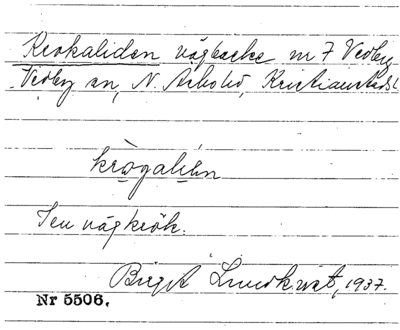 Krokaliden vägbacke nr 7 Vedby
Vedby sn, N. Åsbohd, Kristianstads l
krògalíən
I en vägkrök.
Birgit Lundkvist, 1937.
Nr 5506.